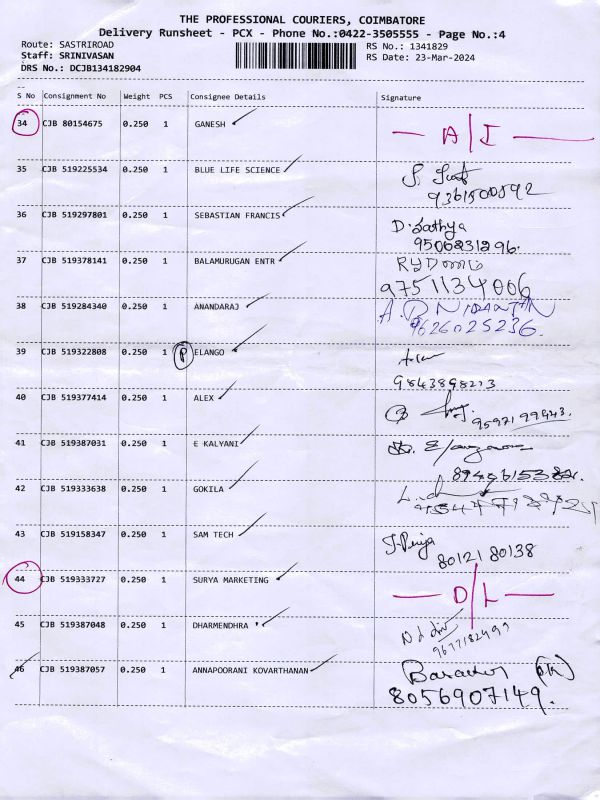 THE PROFESSIONAL COURIERS, COIMBATORE
Delivery Runsheet - PCX - Phone No.:0422-3505555 - Page No.:4
Route: SASTRIROAD
Staff: SRINIVASAN
DRS No.: DCJB134182904
RS No.: 1341829
RS Date: 23-Mar-2024
S No Consignment No Weight PCS Consignee Details Signature
34 CJB 80154675 0.250 1 GANESH A/I
35 CJB 519225534 0.250 1 BLUE LIFE SCIENCE
36 CJB 519297801 0.250 1 SEBASTIAN FRANCIS D. Sathya
9500831296.
37 CJB 519378141 0.250 1 BALAMURUGAN ENTR
9751134006
38 CJB 519284340 0.250 1 ANANDARAJ
9626025236.
39 CJB 519322808 0.250 1 P ELANGO
9843898213
40 CJB 519377414 0.250 1 ALEX
41 CJB 519387031 0.250 1 E KALYANI
42 CJB 519333638 0.250 1 GOKILA
43 CJB 519158347 0.250 1 SAM TECH J. Priya
80121 80138
44 CJB 519333727 0.250 1 SURYA MARKETING D/L
45 CJB 519387048 0.250 1 DHARMENDHRA
46 CJB 519387057 0.250 1 ANNAPOORANI KOVARTHANAN
8056907149.